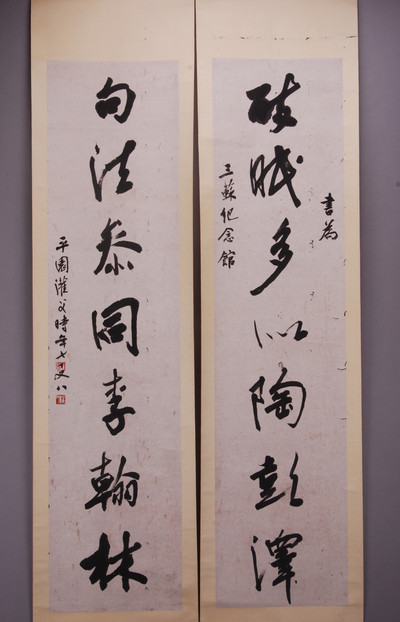 醉眠多似陶彭澤
書為
三蘇紀念館
句法参同李翰林
平園灌父時年七又八